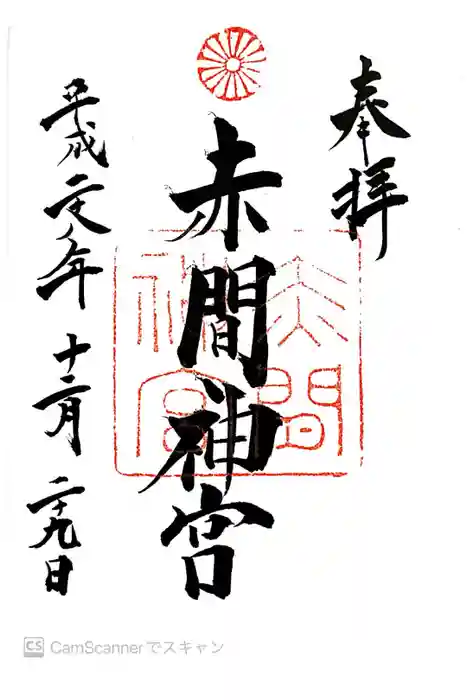 奉拝
赤間神宮
赤間
神宮
平成 年 十二月 二十九日
CS CamScannerでスキャン